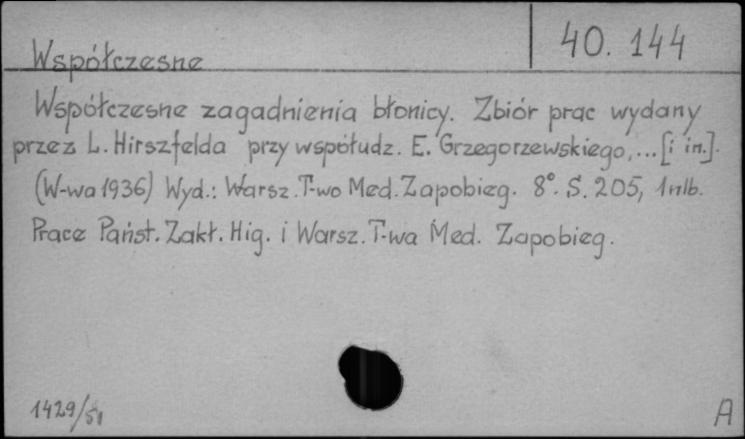 40. 144
Współczesne
Współczesne zagadnienia błonicy. Zbiór prac wydany
przez L. Hirszfelda przy współudz. E. Grzegorzewskiego,... [i in.].
(W-wa 1936) Wyd.: Warsz. T-wo Med. Zapobieg. 8°. S. 205, 1 nlb.
Prace Państ. Zakł. Hig. i Warsz. T-wa Med. Zapobieg.
1429/51
A